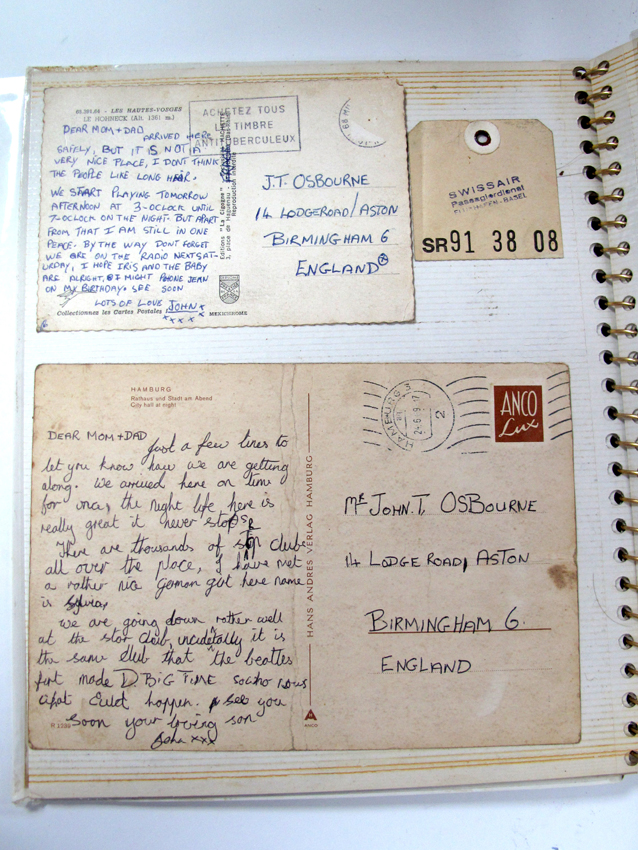 90.301.84 - LES HAUTES-VOSGES
LE HOHNECK (Alt. 1361 m.)
DEAR MOM + DAD
ARRIVED HERE
SAFELY, BUT IT IS NOT A
VERY NICE PLACE, I DONT THINK
THE PEOPLE LIKE LONG HAIR.
WE START PLAYING TOMORROW
AFTERNOON AT 3-OCLOCK UNTIL
7-OCLOCK ON THE NIGHT. BUT APART
FROM THAT I AM STILL IN ONE
PEACE. BY THE WAY DONT FORGET
WE ARE ON THE RADIO NEXT SAT-
URDAY, I HOPE IRIS AND THE BABY
ARE ALRIGHT, I MIGHT PHONE JEAN
ON MY BIRTHDAY. SEE SOON
LOTS OF LOVE JOHN x
x x x x
Collectionnez les Cartes Postales
MEXICHROME
ACHETEZ TOUS
TIMBRE
ANTITUBERCULEUX
Editions "La Cigogne"
1, place de Haguenau
Reproduction interdite
J.T. OSBOURNE
14 LODGEROAD/ASTON
BIRMINGHAM 6
ENGLAND
SWISSAIR
Passagierdienst
SR 91 38 08
HAMBURG
Rathaus und Stadt am Abend
City hall at night
DEAR MOM + DAD
Just a few lines to
let you know how we are getting
along. We arrived here on time
for once, the night life here is
really great it never stops
There are thousands of clubs
all over the place, I have met
a rather nice German girl here name
is Sylvia,
we are going down rather well
at the star club, incidetally it is
the same club that the beatles
first made D BIG TIME so who nows
what happen. see you
soon your loving son
John xxx
HANS ANDRES VERLAG HAMBURG
ANCO
HAMBURG 3
2
ANCO
Lux
MR JOHN. T. OSBOURNE
14 LODGE ROAD, ASTON
BIRMINGHAM 6.
ENGLAND